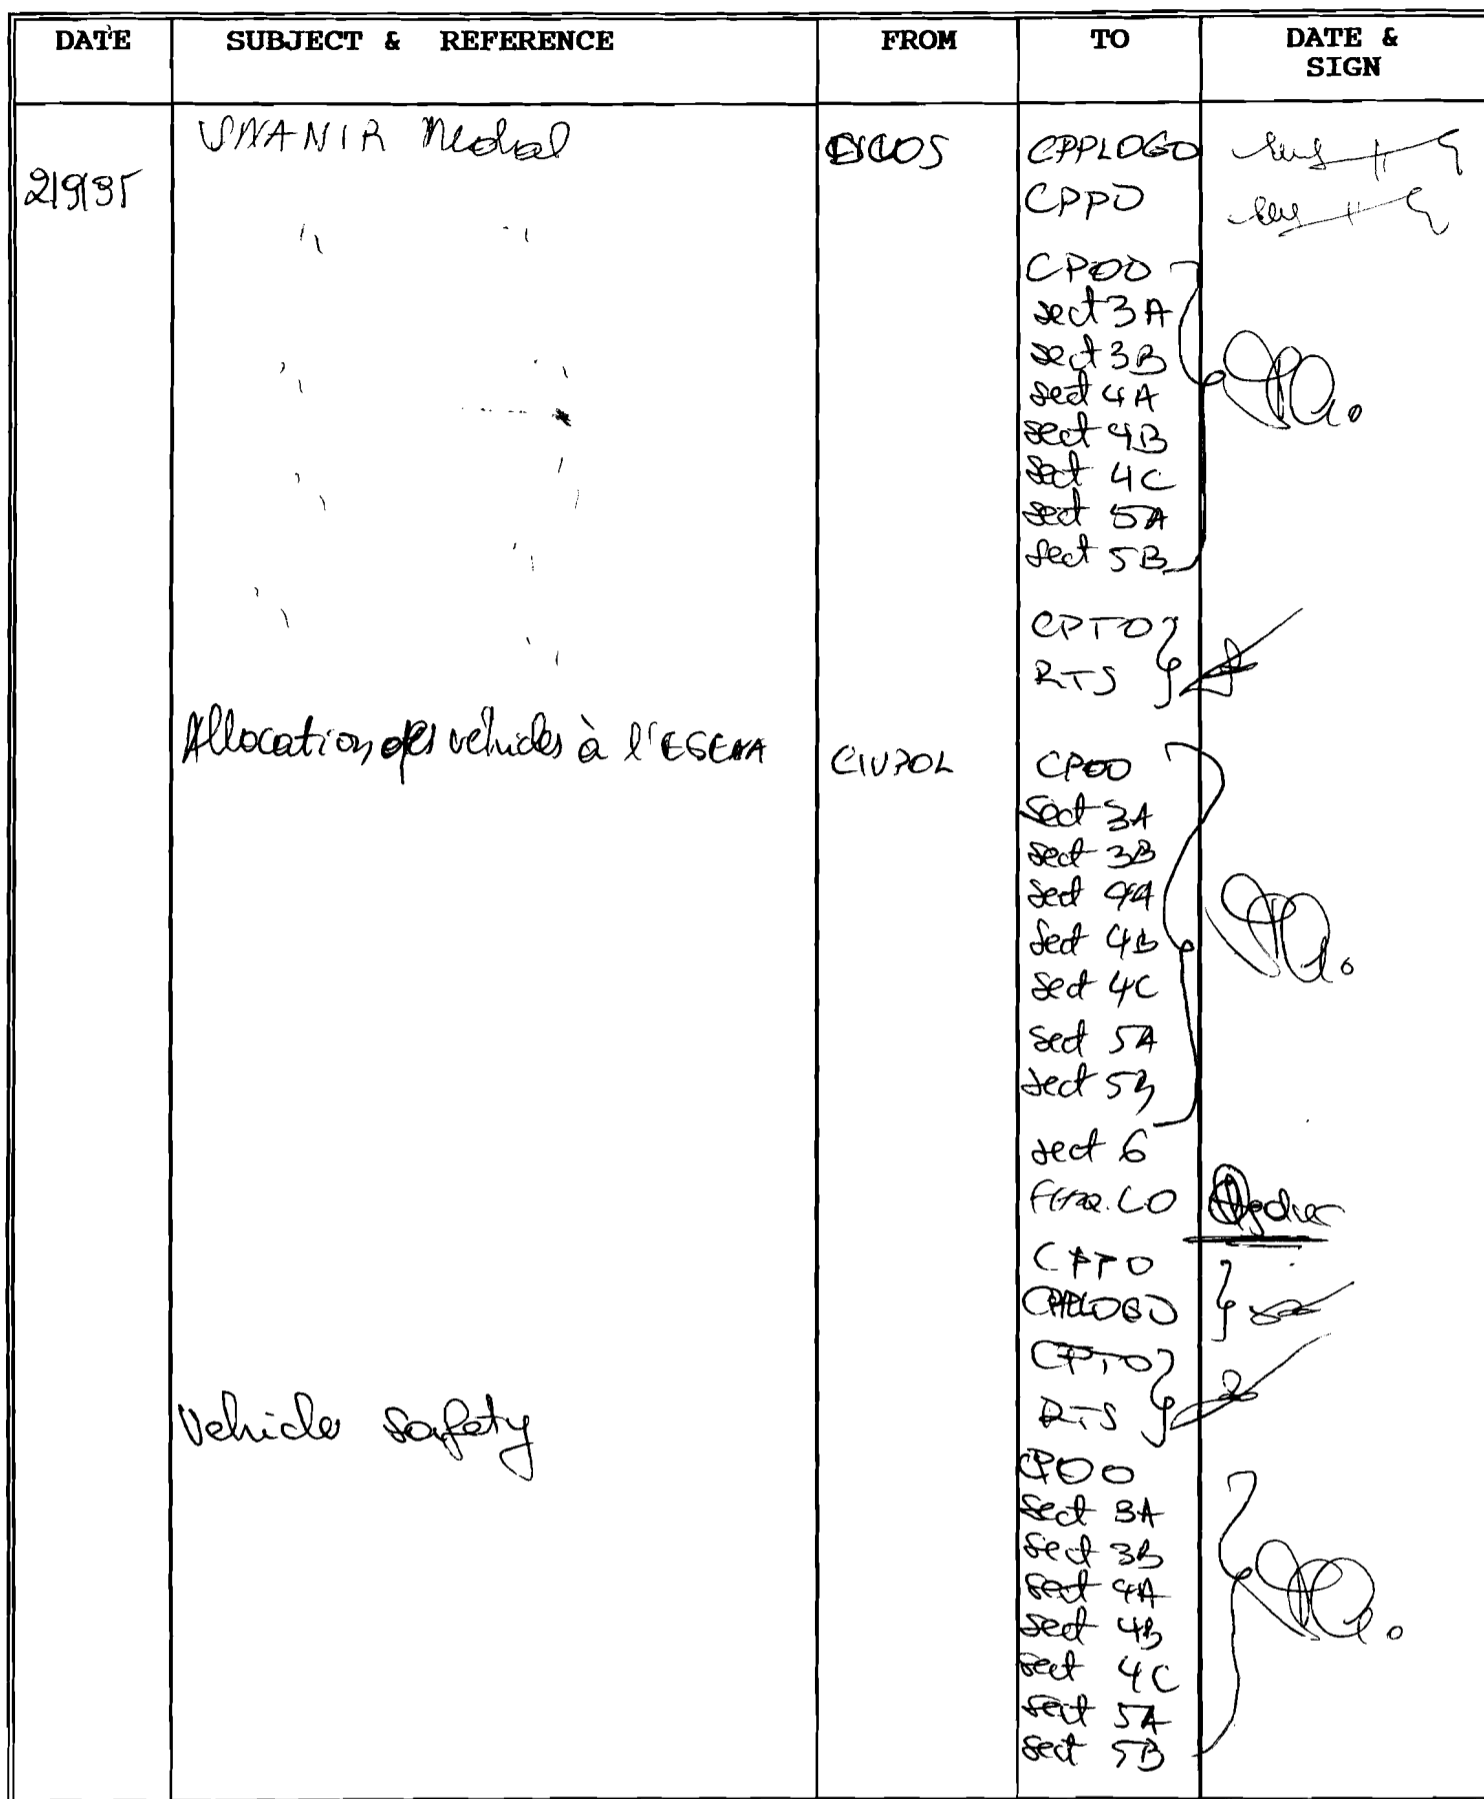 DATE SUBJECT & REFERENCE FROM TO DATE & SIGN
UNAMIR Medal CPPLOGO
2/9/95 CPPO
CPOO
sect 3A
sect 3B
sect 4A
sect 4B
sect 4C
sect 5A
sect 5B
CPTO
RTS
Allocation des véhicules à l' CIVPOL CPOO
sect 3A
sect 3B
sect 4A
sect 4B
sect 4C
sect 5A
sect 5B
sect 6
LO
CPPO
CPPLOGO
CPTO
RTS
Vehicle safety
CPOO
sect 3A
sect 3B
sect 4A
sect 4B
sect 4C
sect 5A
sect 5B